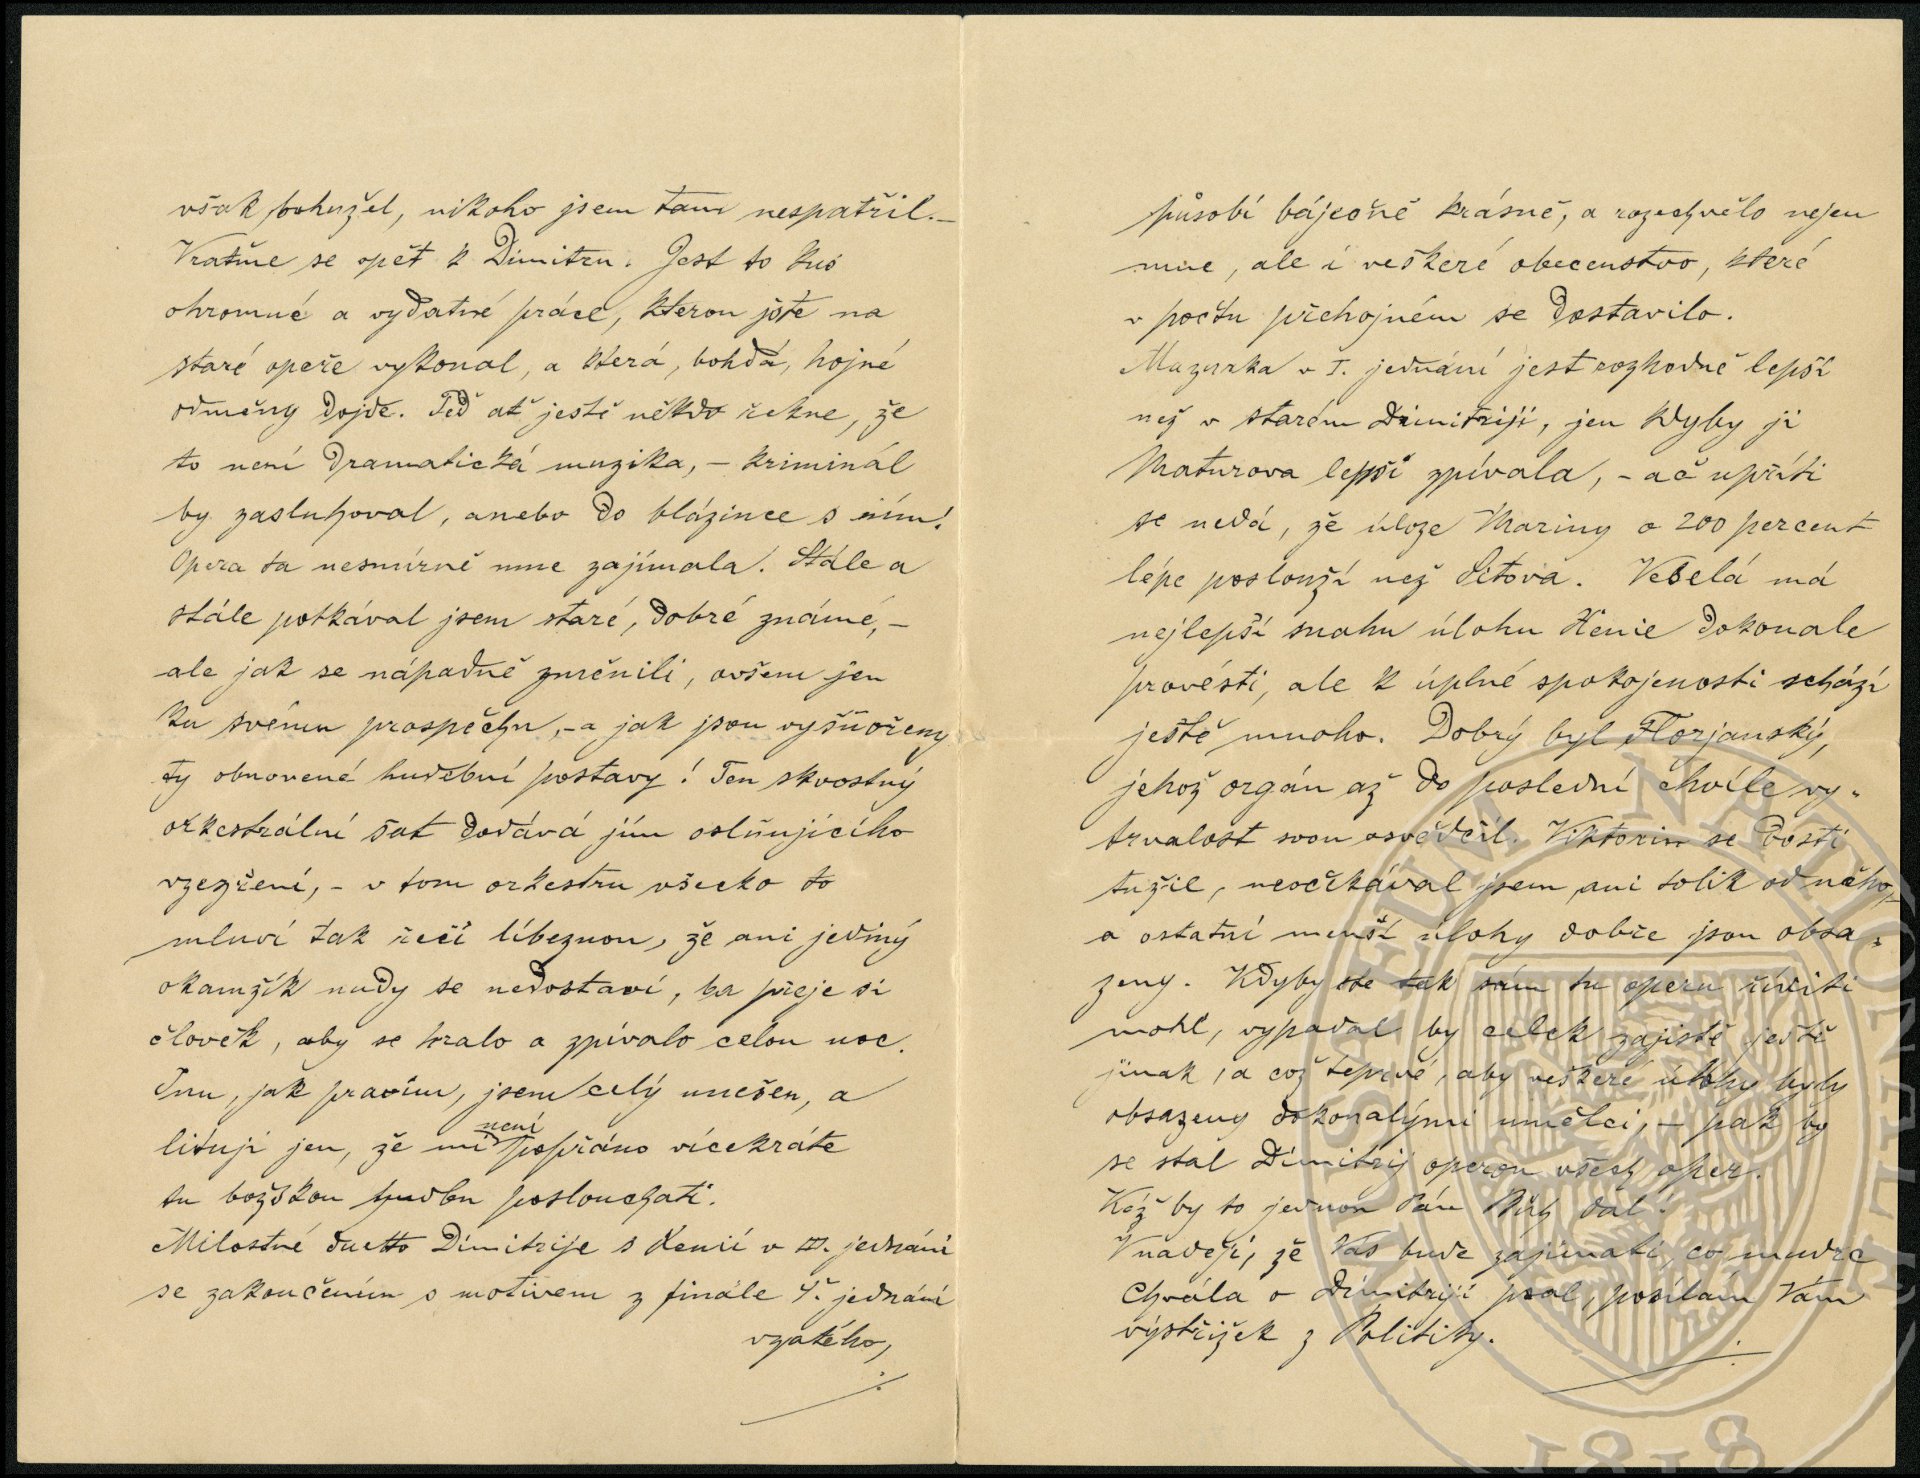 však, bohužel, nikoho jsem tam nespatřil. –
Vraťme se opět k Dimitru. Jest to kus
ohromné a vydatné práce, kterou jste na
staré opeře vykonal, a která, bohdá, hojné
odměny dojde. Teď ať ještě někdo řekne, že
to není dramatická muzika, – kriminál
by zasluhoval, anebo do blázince s ním!
Opera ta nesmírně mne zajímala. Stále a
stále potkával jsem staré, dobré známé, –
ale jak se nápadně změnili, ovšem jen
ku svému prospěchu, – a jak jsou vyšňořeny
ty obnovené hudební postavy! Ten skvostný
orkestrální šat dodává jim oslňujícího
vzezření, – v tom orkestru všecko to
mluví tak řečí líbeznou, že ani jediný
okamžik nudy se nedostaví, ba přeje si
člověk, aby se hralo a zpívalo celou noc.
Inu, jak pravím, jsem celý unešen, a
lituji jen, že mi není popřáno vícekráte
tu božskou hudbu poslouchati.
Milostné duetto Dimitrije s Xenií v III. jednání
se zakončením s motivem z finále 4. jednání
vzatého,
působí báječně krásně, a rozechvělo nejen
mne, ale i veškeré obecenstvo, které
v počtu přehojném se dostavilo.
Mazurka v I. jednání jest rozhodně lepší
než v starém Dimitriji, jen kdyby ji
Maturova lepší zpívala, – ač upříti
se nedá, že úloze Mariny o 200 percent
lépe poslouží než Sitová. Veselá má
nejlepší snahu úlohu Xenie dokonale
provésti, ale k úplné spokojenosti schází
ještě mnoho. Dobrý byl Florjanský,
jehož orgán až do poslední chvíle vy-
trvalost svou osvědčil. Viktorin se dosti
tužil, neočekával jsem ani tolik od něho,
a ostatní menší úlohy dobře jsou obsa-
zeny. Kdyby ste tak sám tu operu říditi
mohl, vypadal by celek zajisté ještě
jinak, a což teprvé, aby veškeré úlohy byly
obsazeny dokonalými umělci, – pak by
se stal Dimitrij operou všech oper.
Kéž by to jednou Pán Bůh dal!
V naději, že Vás bude zajímati, co mudrc
Chvála o Dimitriji psal, posílám Vám
výstřižek z Politiky.
MUSEUM NATIONALE
1818